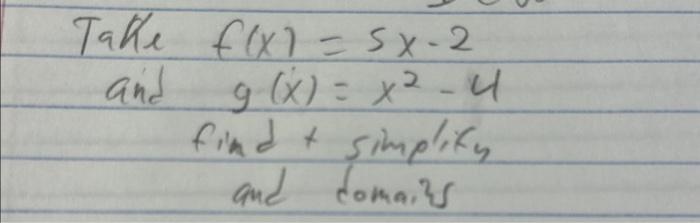 Take f(x) = 5x - 2
and g(x) = x² - 4
find + simplify
and domains